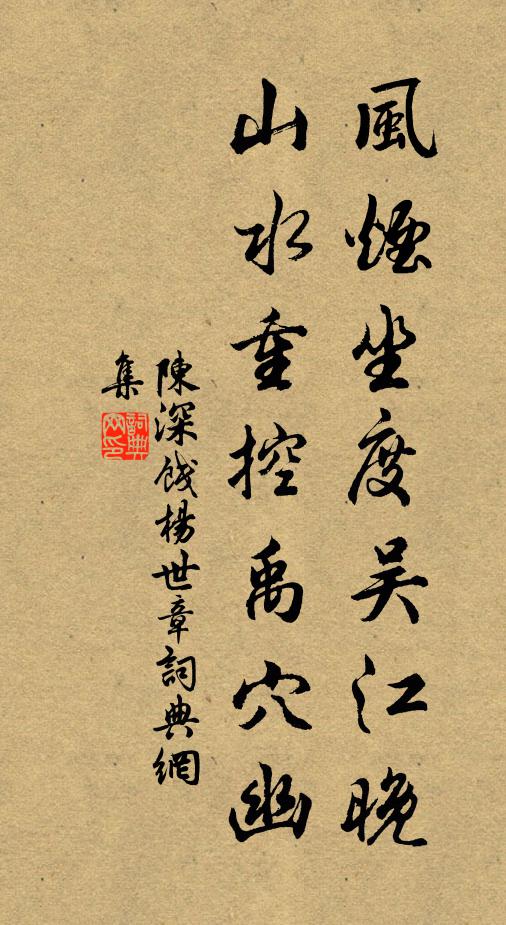 風煙坐度吴江晚
山水重控禹穴幽
陳深餞楊世章詞典網
集
詞典
网印